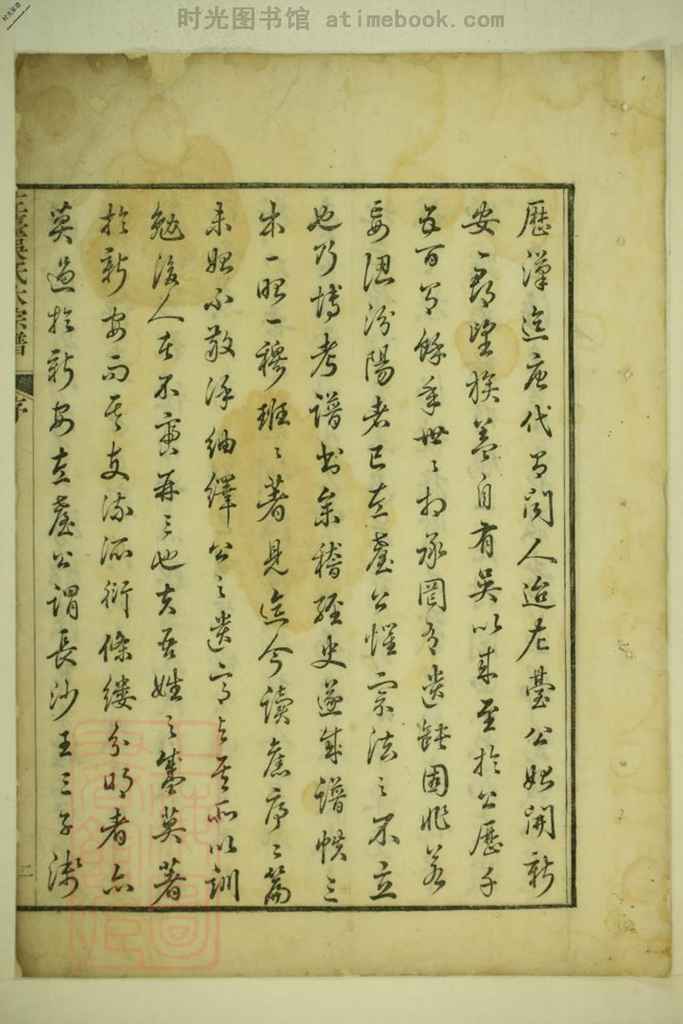 时光图书馆 atimebook.com
歷漢迄唐代有聞人迨左臺公始開新
安一郡望族蓋自有吳以來至於公歷千
五百有餘年世々相承罔有遺缺固非若
妄認汾陽者已左臺公懼宗法之不立
也乃博考譜書參稽經史遂成譜帙三
本一昭一穆班々著見迄今讀舊序二篇
未始不敬佩紬繹公之遺言與其所以訓
勉後人者不啻再三也夫吾姓之盛莫著
於新安而其支流派衍條縷分明者亦
莫過於新安左臺公謂長沙王三子淺
左臺吳氏大宗譜
序
二